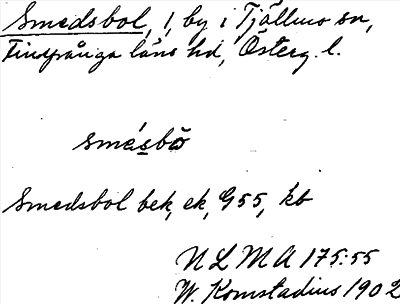 Smedsbol, 1, by i Tjällmo sn,
Finspånga läns hd, Österg. l.
smésbo
Smedsbol bek, ek, G55, kb
NLMA 175:55
W. Komstadius 1902